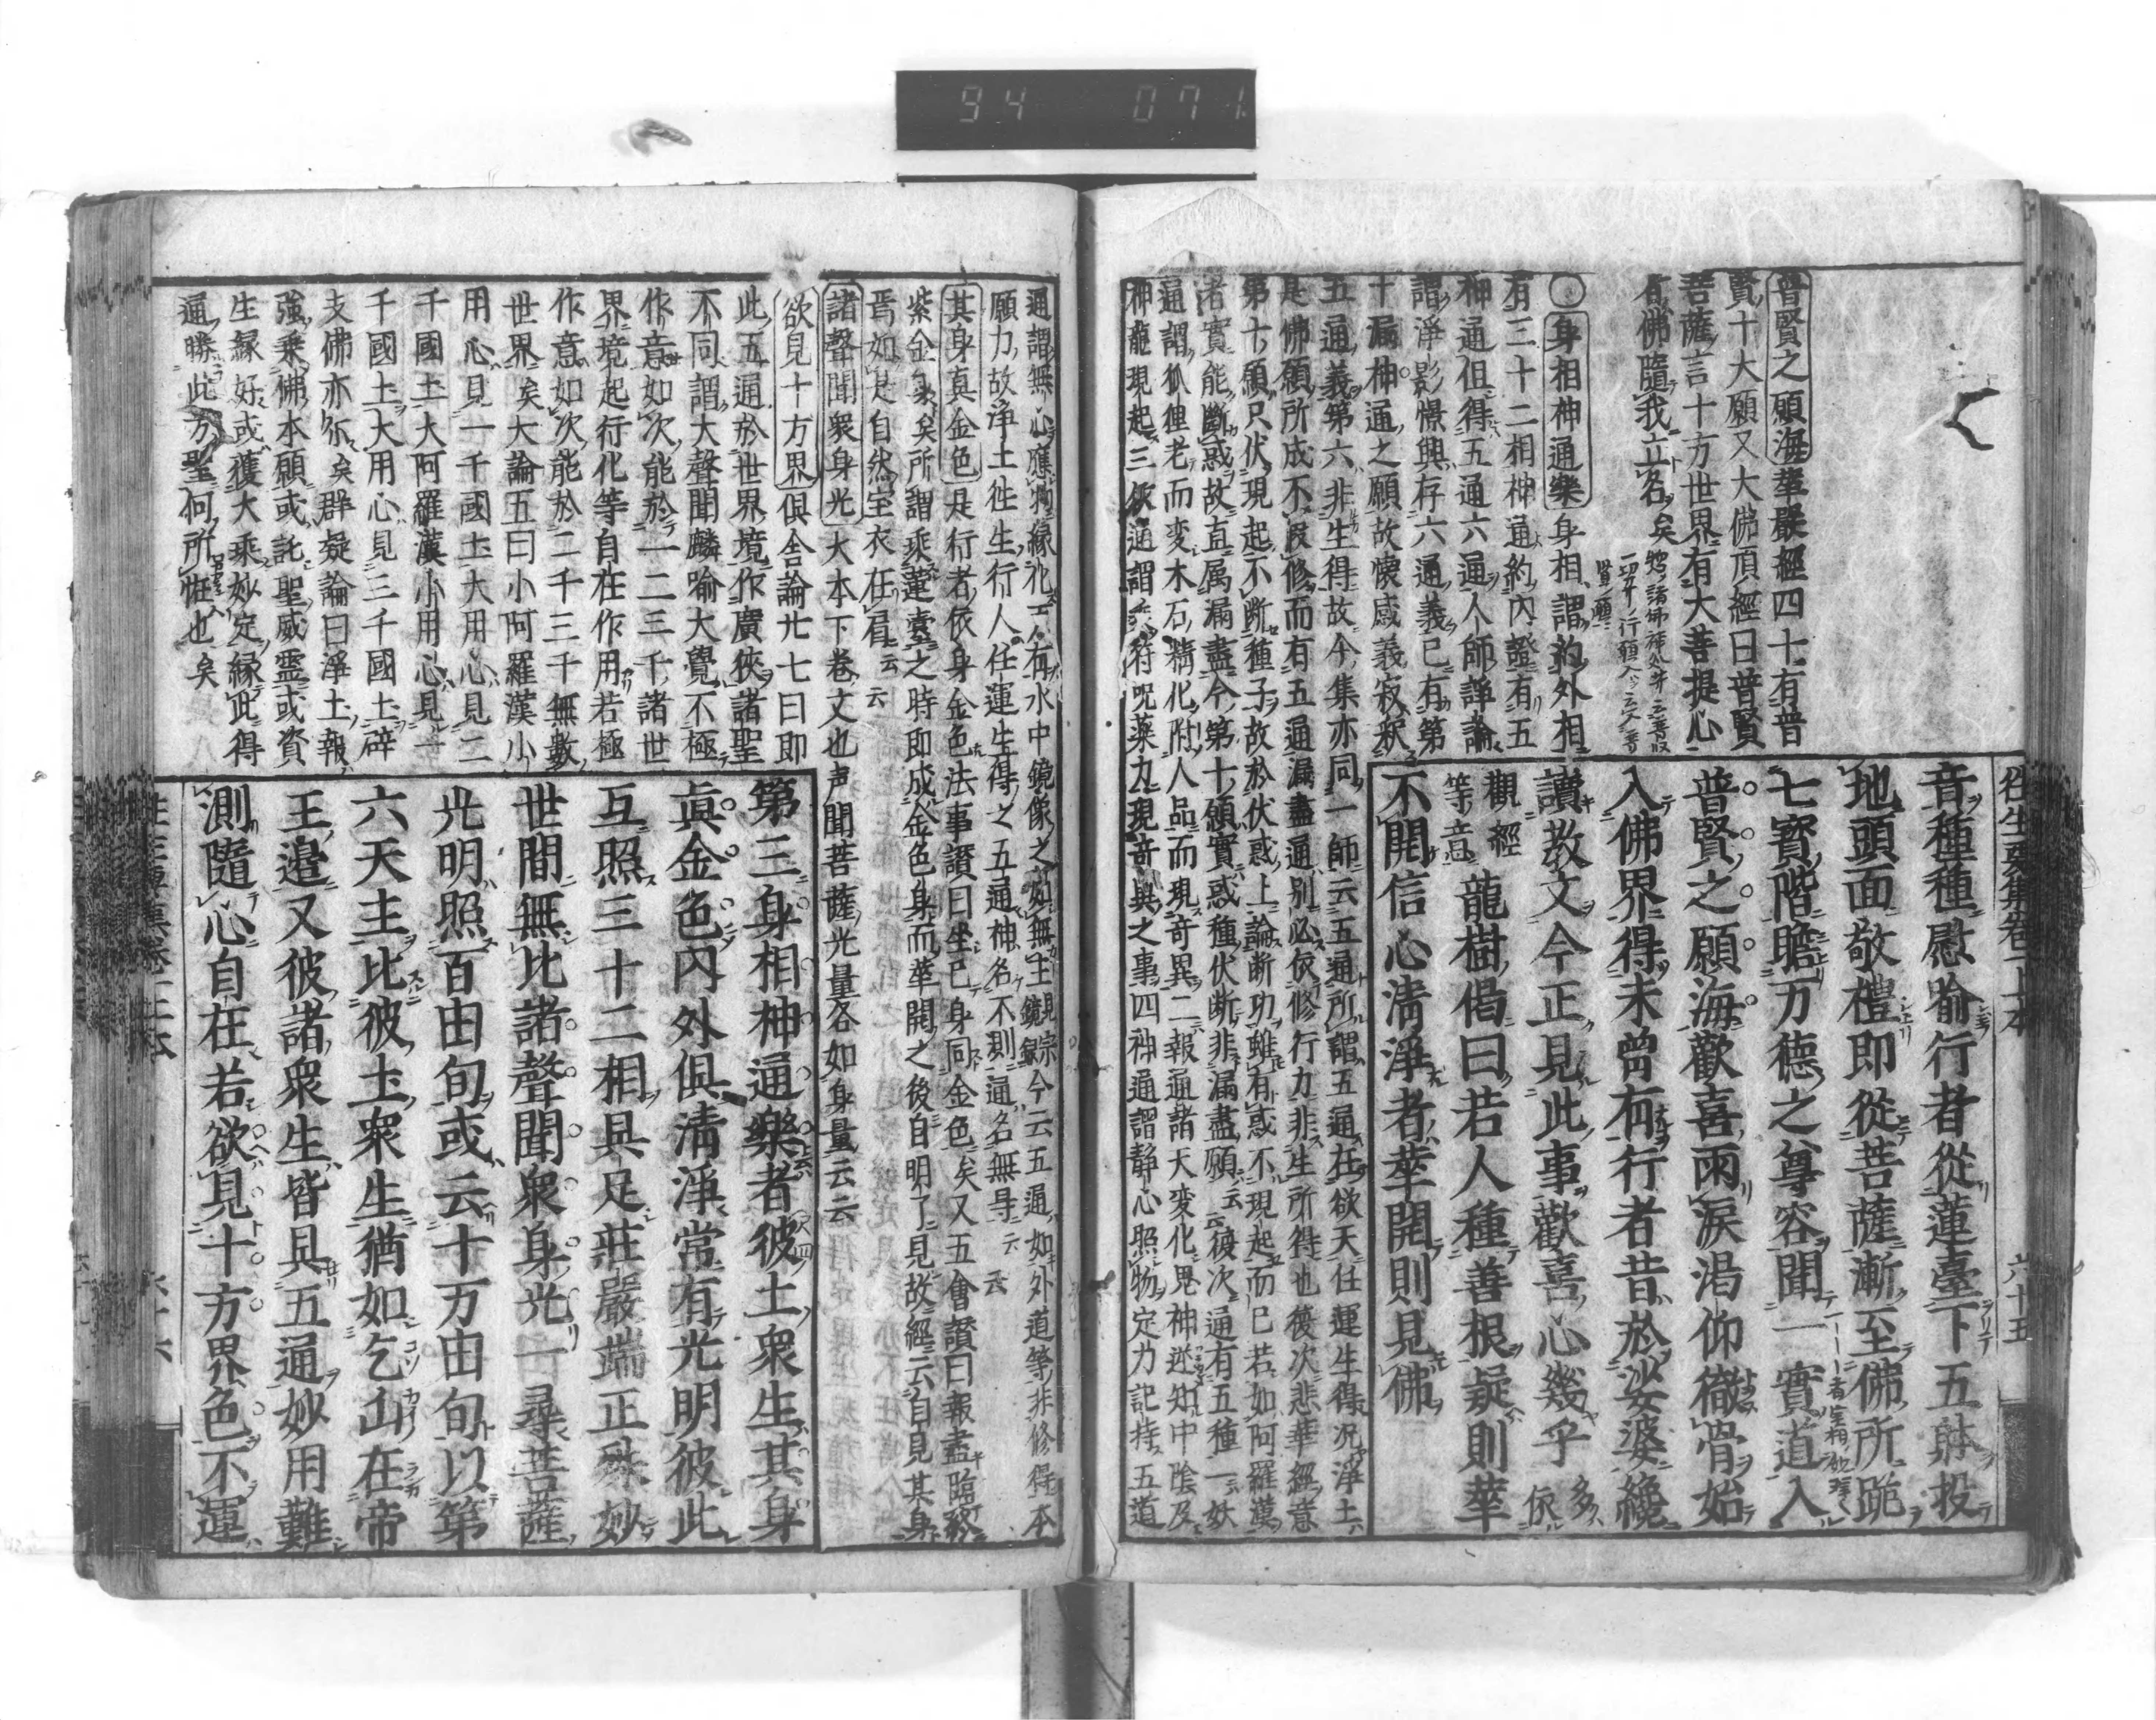 94 071
往生要集卷上本 六十五
普賢之願海華嚴經四十有普
賢十大願又大佛頂經曰普賢
菩薩言十方世界有大菩提心
者佛隨我立名矣
○身相神通樂身相謂約外相
有三十二相神通約內證有五
神通但得五通六通人師諍論
謂淨影憬興存六通義已有第
十漏神通之願故懷感義寂釈
五通義第六非生得故今集亦同一師云五通所謂五通在欲天任運生得況淨土
是佛願所成不假修而有五通漏盡通別必依修行力非生所得也後次悲華經意
第十願只伏現起不断種子故於伏惑上論断功雖有惑不現起而已若如阿羅漢
者實能斷惑故直属漏盡今第十願實惑種伏断非漏盡願云云後次通有五種一妖
通謂狐狸老而変木石精化附人品而現奇異二報通諸天変化鬼神逆知中陰及
神龍現起三依通謂符呪薬力現奇異之事四神通謂静心照物定力記持五道
音種種慰喻行者從蓮臺下五躰投
地頭面敬禮即從菩薩漸至佛所跪
七寶階瞻万德之尊容聞一實道入
普賢之願海歡喜雨淚渴仰徹骨始
入佛界得未曾有行者昔於娑婆纔
讀教文今正見此事歡喜心幾乎 多依
觀經等意 龍樹偈曰若人種善根疑則華
不開信心清淨者華開則見佛
通謂無心應物緣化万有水中鏡像之如無主 宗鏡錄 今云五通如外道等非修得本
願力故淨土往生行人任運生得之五通神名不測通名無㝵云云
其身真金色是行者依身金色法事讃曰坐已身同金色矣又五會讃曰報盡臨終
紫金臺矣所謂乘蓮臺之時即成金色身而華開之後自明了見故經云自見其身
焉如是自然宝衣在肩云云
諸聲聞衆身光大本下卷文也声聞菩薩光量各如身量云云
欲見十方界俱舍論廿七曰即
此五通於世界境作廣狹諸聖
不同謂大聲聞麟喻大覺不極
作意如次能於一二三千諸世
界境起行化等自在作用若極
作意如次能於二千三千無數
世界矣大論五曰小阿羅漢小
用心見一千國土大用心見二
千國土大阿羅漢小用心見二
千國土大用心見三千國土辟
支佛亦尒矣群疑論曰淨土報
強乘佛本願或託聖威靈或資
生緣好或獲大乘妙定緣此得
通勝此方聖何所恠也矣
第三身相神通樂者彼土衆生其身
真金色內外俱清淨常有光明彼此
互照三十二相具足莊嚴端正殊妙
世間無比諸聲聞衆身光一尋菩薩
光明照百由旬或云十万由旬以第
六天主比彼土衆生猶如乞丐在帝
王邊又彼諸衆生皆具五通妙用難
測隨心自在若欲見十方界色不運